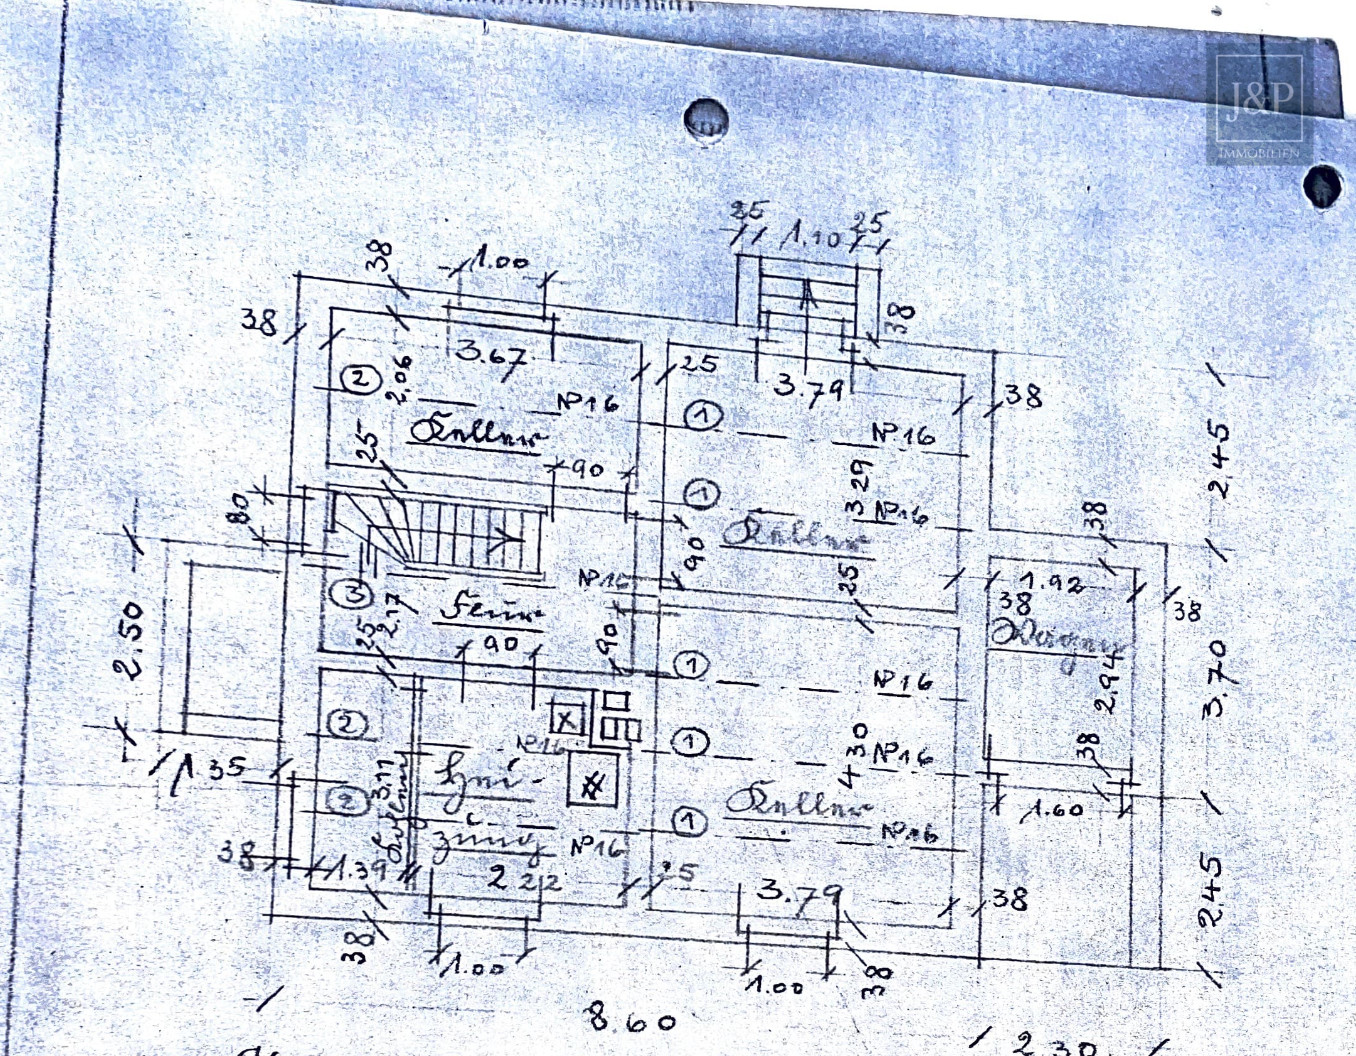 J&P
IMMOBILIEN
25
1.10
25
38
1.00
38
38
3.67
25
3.79
38
38
2
2.06
№16
1
№16
2.45
Keller
25
90
1
3 29
№16
Keller
38
80
90
25
№16
1.92
38
38
3
2.17
Flur
90
25
90
2.94
2.50
3.70
1
№16
2
№16
1
4 30
№16
38
Hei-
zung
1.35
3.11
2
Keller
1
№16
1.60
№16
38
1.39
2 22
25
3.79
38
2.45
38
1.00
1.00
38
8.60
2.30